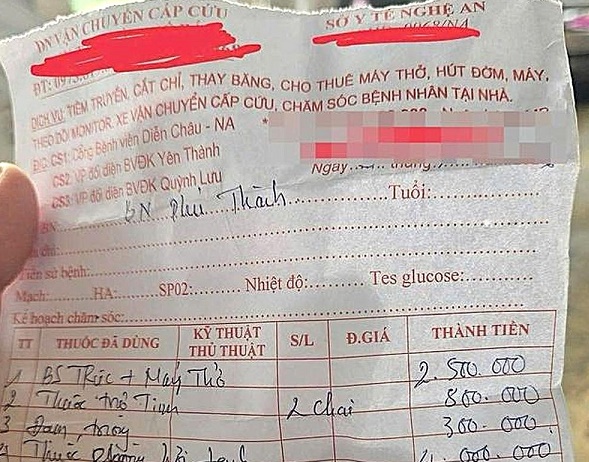 DN VẬN CHUYỂN CẤP CỨU
SỞ Y TẾ NGHỆ AN
ĐT: 0973
DỊCH VỤ: TIÊM TRUYỀN, CẮT CHỈ, THAY BĂNG, CHO THUÊ MÁY THỞ, HÚT ĐỜM, MÁY,
THEO DÕI MONITOR. XE VẬN CHUYỂN CẤP CỨU, CHĂM SÓC BỆNH NHÂN TẠI NHÀ.
Đ/C: CS1: Cổng Bệnh viện Diễn Châu - NA *
CS2: VP đối diện BVĐK Yên Thành
Ngày
CS3: VP đối diện BVĐK Quỳnh Lưu
BN: BN Phú Thành Tuổi:
Tiền sử bệnh:
Mạch: HA: SP02: Nhiệt độ: Tes glucose:
Kế hoạch chăm sóc:
TT THUỐC ĐÃ DÙNG KỸ THUẬT THỦ THUẬT S/L Đ.GIÁ THÀNH TIỀN
1 BS Trực + Máy Thở 2.500.000
2 Thuốc trợ Tim 2 chai 800.000
3 300.000
4 Thuốc 000.000